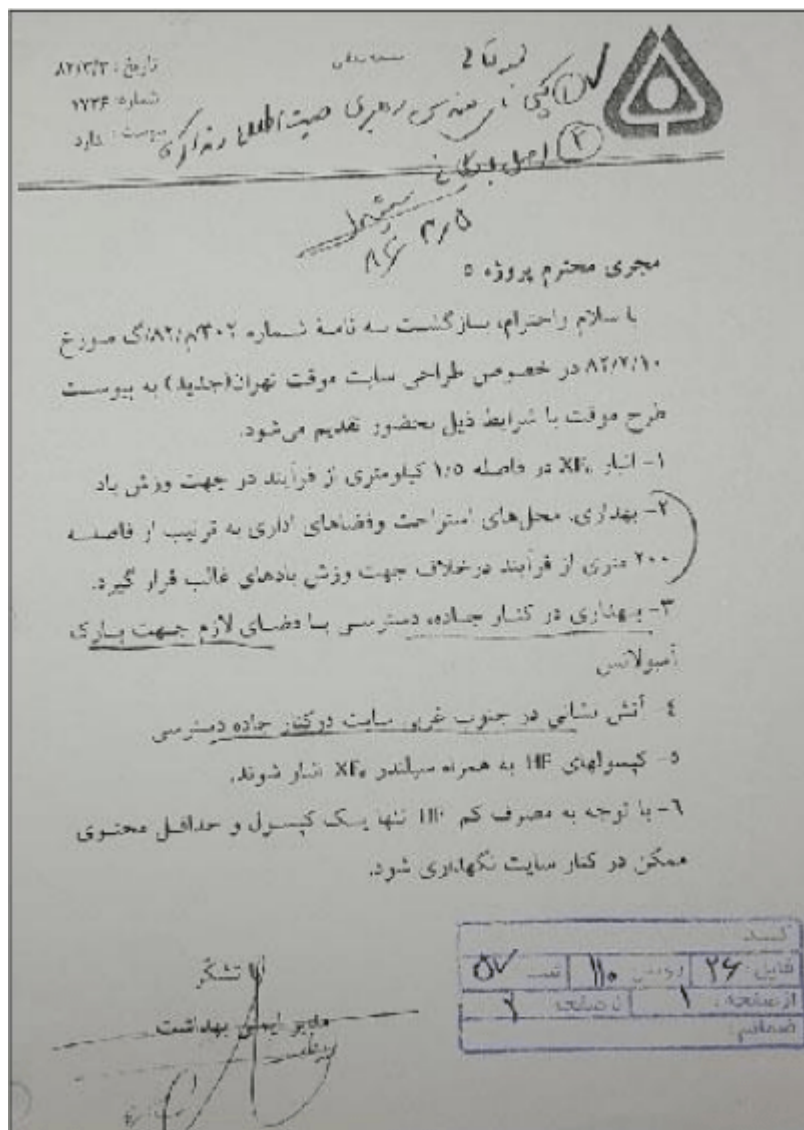 بسمه تعالی
تاریخ: ۸۲/۳/۳
شماره: ۱۷۳۶
پیوست: دارد
۲ اصل بایگانی
مجری محترم پروژه ۵
با سلام واحترام، بازگشت به نامۀ شماره ۳۰۲/م/۸۲/ک مورخ
در خصوص طراحی سایت موقت تهران(جدید) به پیوست
طرح موقت با شرایط ذیل بحضور تقدیم می‌شود.
۱- انبار XF₆ در فاصله ۱/۵ کیلومتری از فرآیند در جهت وزش باد
۲- بهداری، محل‌های استراحت وفضاهای اداری به ترتیب از فاصله
۲۰۰ متری از فرآیند درخلاف جهت وزش بادهای غالب قرار گیرد.
۳- بهداری در کنار جاده، دسترسی با فضای لازم جهت پارک
آمبولانس
٤- آتش نشانی در جنوب غربی سایت درکنار جاده دسترسی
۵- کپسولهای HF به همراه سیلندر XF₆ انبار شوند.
٦- با توجه به مصرف کم HF تنها یک کپسول و حداقل محتوی
ممکن در کنار سایت نگهداری شود.
با تشکر
مدیر ایمنی بهداشت
فایل: ۲۶ ردیف ۱۱۰ ۵۷
از صفحه: ۱ تا صفحه ۲
ضمائم: